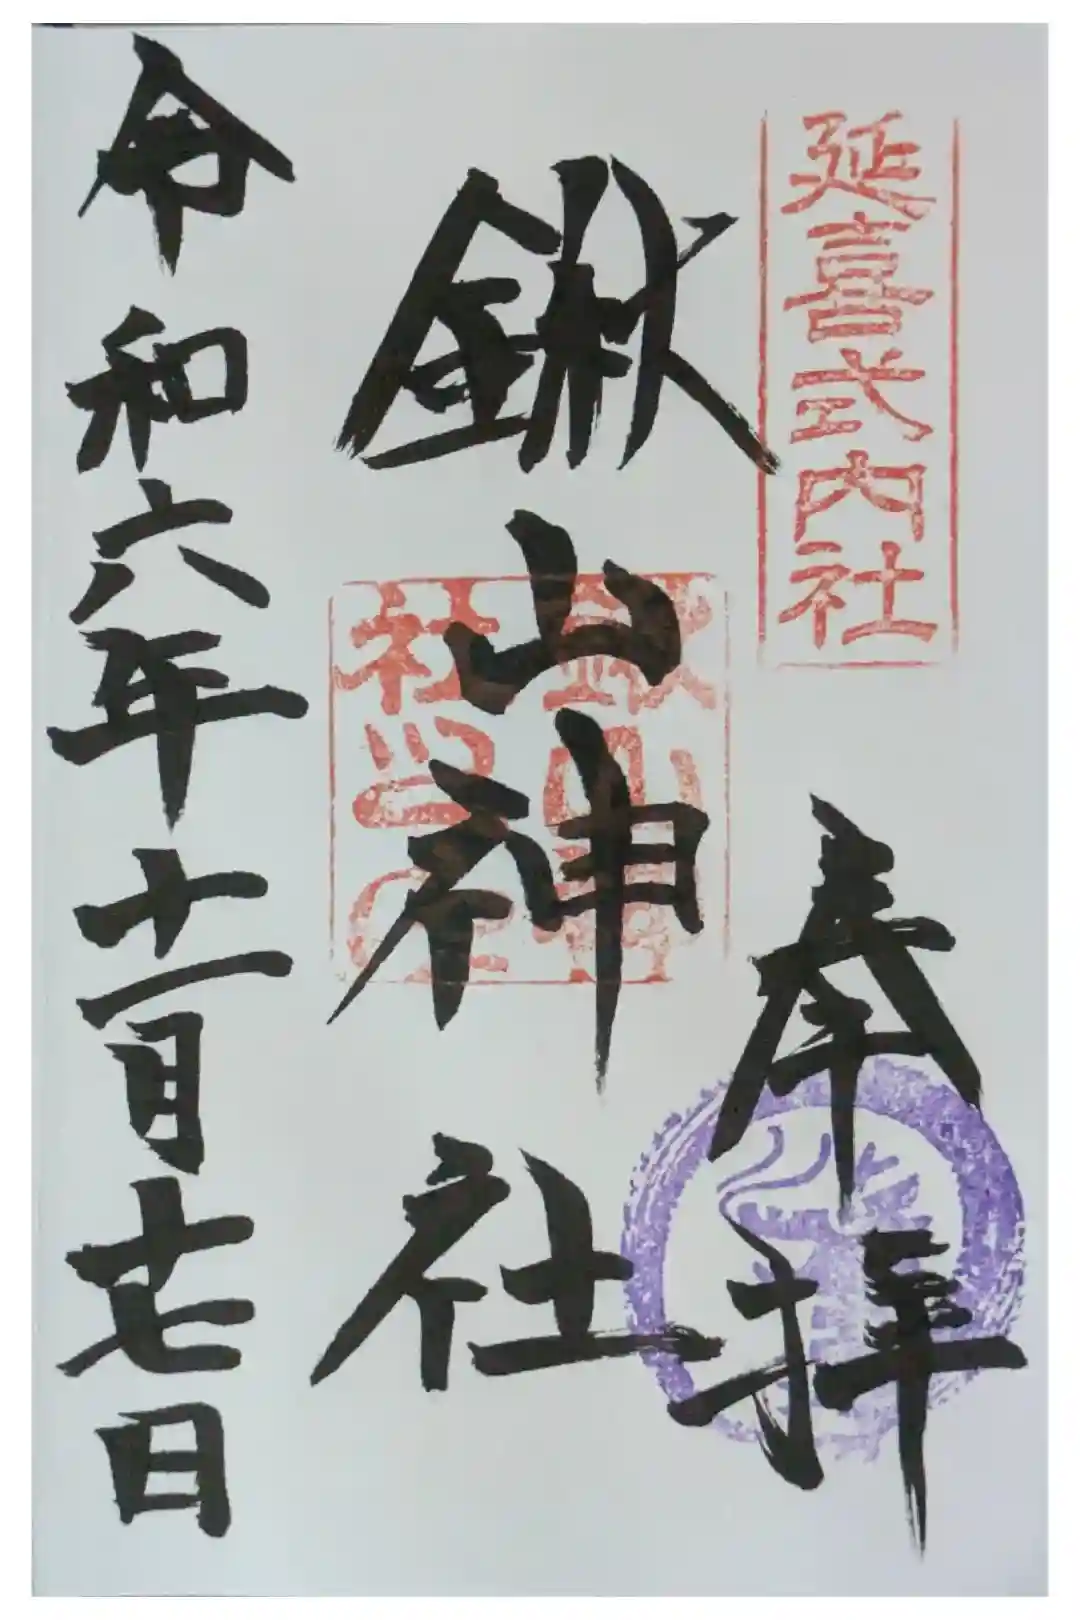 延喜式内社
奉拝
鍬山神社
令和六年十一月十七日